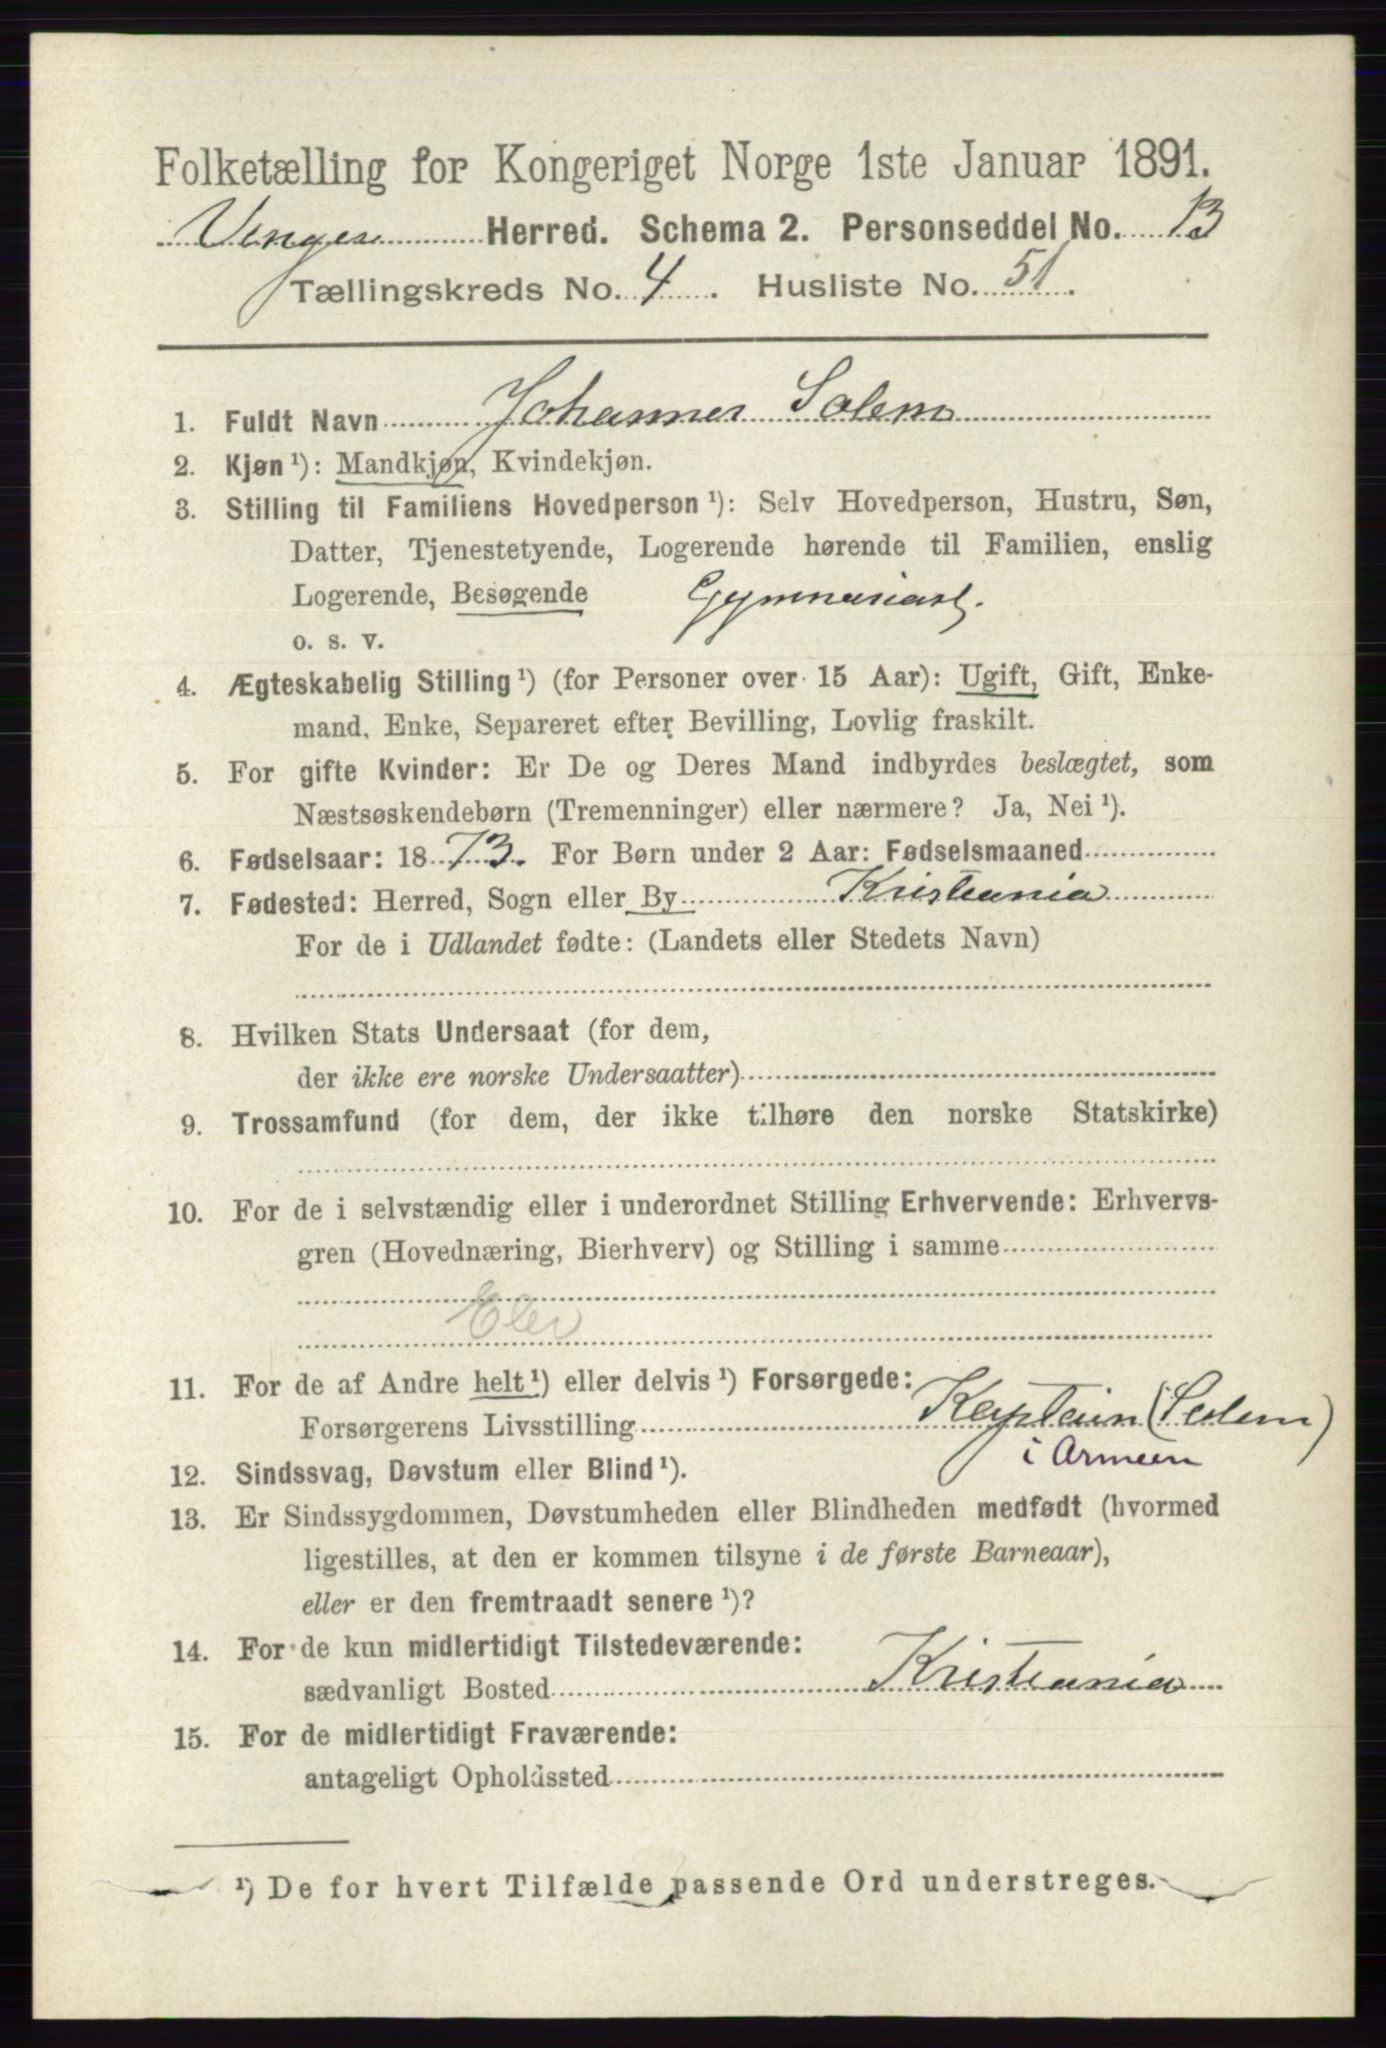 Folketælling for Kongeriget Norge 1ste Januar 1891.
Vinger Herred. Schema 2. Personseddel No. 13
Tællingskreds No. 4. Husliste No. 51.
1. Fuldt Navn Johannes Solem
2. Kjøn ¹): Mandkjøn, Kvindekjøn.
3. Stilling til Familiens Hovedperson ¹): Selv Hovedperson, Hustru, Søn,
Datter, Tjenestetyende, Logerende hørende til Familien, enslig
Logerende, Besøgende Gymnasiast.
o. s. v.
4. Ægteskabelig Stilling ¹) (for Personer over 15 Aar): Ugift, Gift, Enke-
mand, Enke, Separeret efter Bevilling, Lovlig fraskilt.
5. For gifte Kvinder: Er De og Deres Mand indbyrdes beslægtet, som
Næstsøskendebørn (Tremenninger) eller nærmere? Ja, Nei ¹).
6. Fødselsaar: 1873. For Børn under 2 Aar: Fødselsmaaned
7. Fødested: Herred, Sogn eller By Kristiania
For de i Udlandet fødte: (Landets eller Stedets Navn)
8. Hvilken Stats Undersaat (for dem,
der ikke ere norske Undersaatter)
9. Trossamfund (for dem, der ikke tilhøre den norske Statskirke)
10. For de i selvstændig eller i underordnet Stilling Erhvervende: Erhvervs-
gren (Hovednæring, Bierhverv) og Stilling i samme
Elev
11. For de af Andre helt ¹) eller delvis ¹) Forsørgede:
Forsørgerens Livsstilling Kaptein (Solem)
i Armeen
12. Sindssvag, Døvstum eller Blind ¹).
13. Er Sindssygdommen, Døvstumheden eller Blindheden medfødt (hvormed
ligestilles, at den er kommen tilsyne i de første Barneaar),
eller er den fremtraadt senere ¹)?
14. For de kun midlertidigt Tilstedeværende:
sædvanligt Bosted Kristiania
15. For de midlertidigt Fraværende:
antageligt Opholdssted
¹) De for hvert Tilfælde passende Ord understreges.